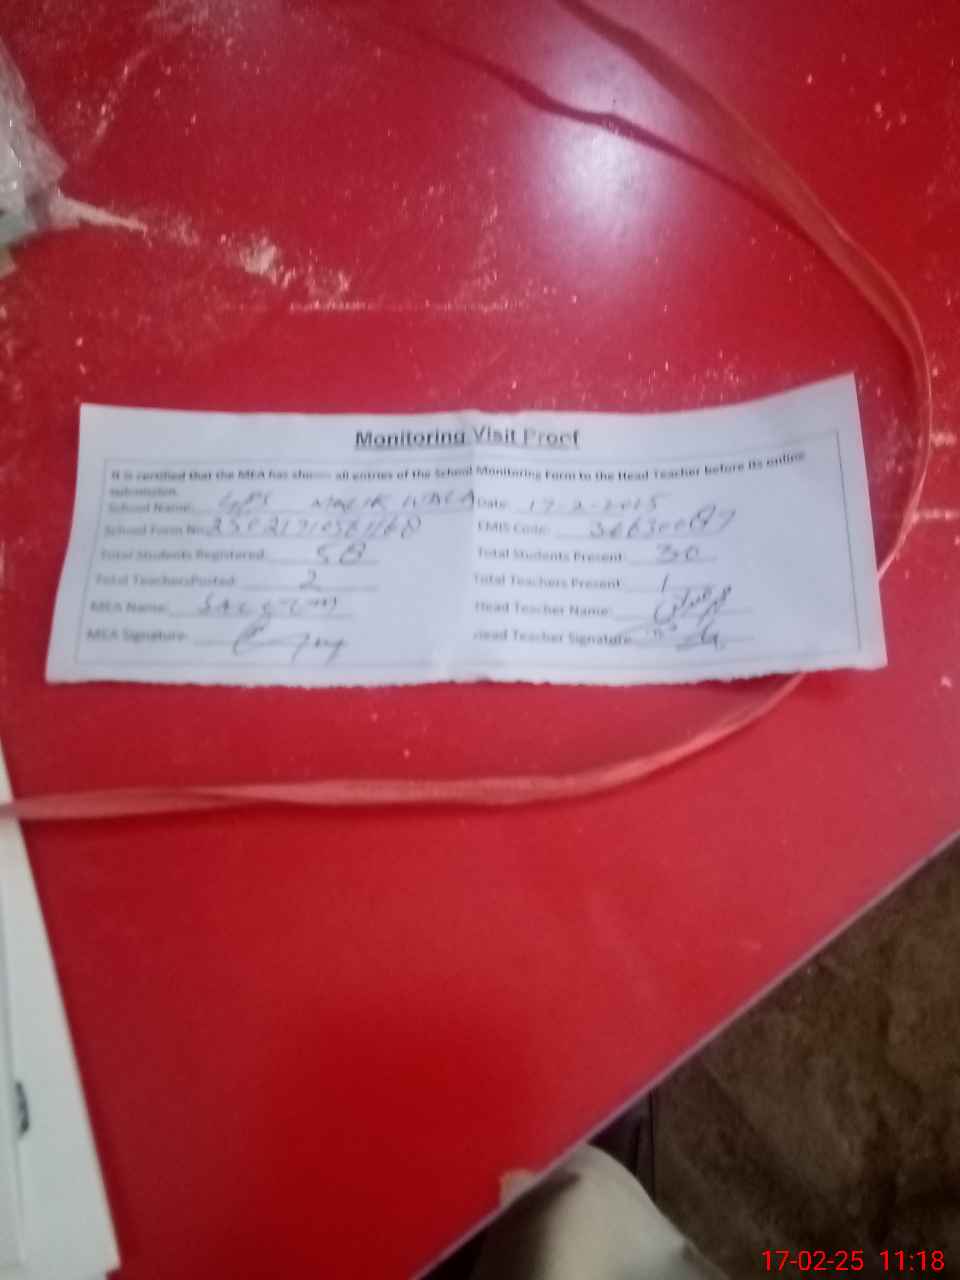 Monitoring Visit Proof
It is certified that the MEA has shown all entries of the School Monitoring Form to the Head Teacher before its online
submission.
School Name: GPS MALIK WALA Date: 17-2-2025
School Form No: EMIS Code:
Total Students Registered: 58 Total Students Present: 30
Total Teachers Posted: 2 Total Teachers Present: 1
MEA Name: Head Teacher Name:
MEA Signature: Head Teacher Signature:
17-02-25 11:18